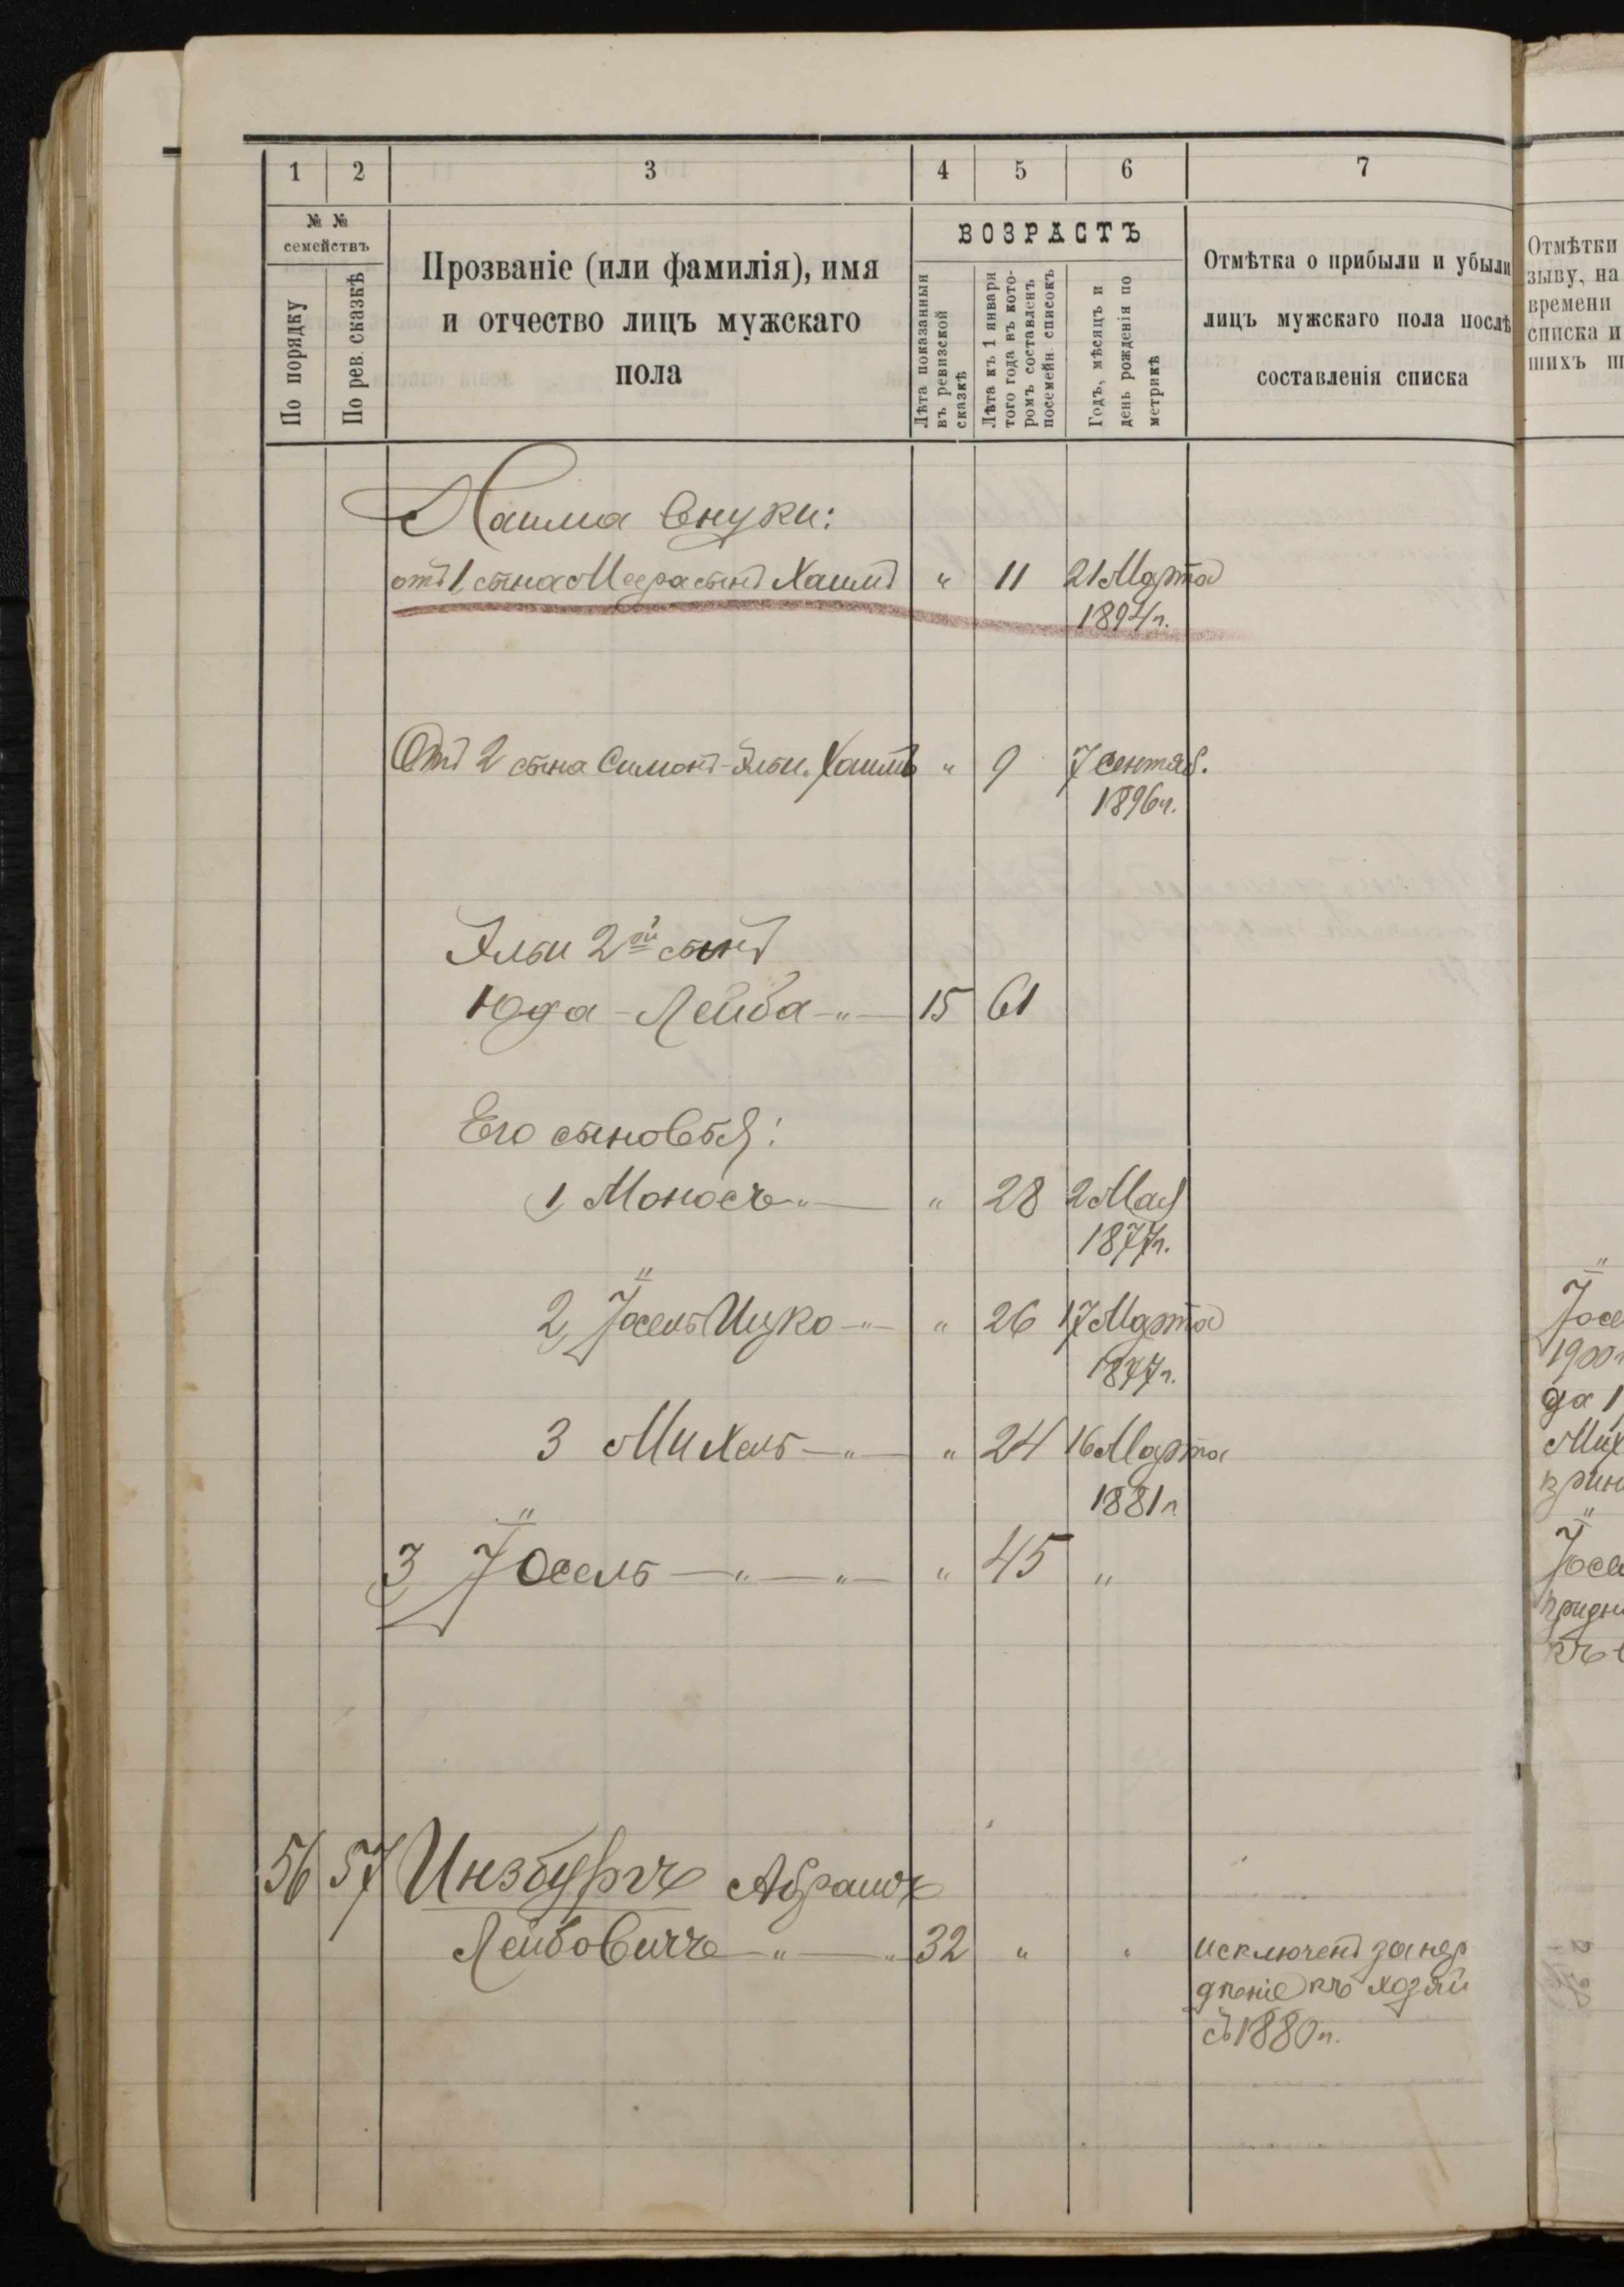 1 2 3 4 5 6 7
№ №
семействъ
По порядку
По рев. сказкѣ
Прозваніе (или фамилія), имя
и отчество лицъ мужскаго
пола
ВОЗРАСТЪ
Лѣта показанныя
въ ревизской
сказкѣ
Лѣта къ 1 января
того года въ кото-
ромъ составленъ
посемейн. списокъ
Годъ, мѣсяцъ и
день рожденія по
метрикѣ
Отмѣтка о прибыли и убыли
лицъ мужскаго пола послѣ
составленія списка
Отмѣтки
зыву, на
времени
списка и
шихъ
внуки:
отъ 1, сына Меера сынъ Хаимъ " 11 21 Марта
1894 г.
Отъ 2 сына Симонъ-Эльи. Хаимъ " 9 7 сентяб.
1896 г.
Эльи 2й сынъ
Юда-Лейба -"- 15 61
Его сыновья:
1, Моносъ -"- " 28 2 Мая
1877 г.
2, Іосель Ицко -"- " 26 17 Марта
3 Михель -"- " 24 16 Марта
1881 г
3, Іосель -"-"- " 45 "
56 57 Инзбургъ Абрамъ
Лейбовичъ -"-" 32 " " исключенъ за
къ
съ 1880 г.
Іосе
1900 г
да 1
Мих
Іосе